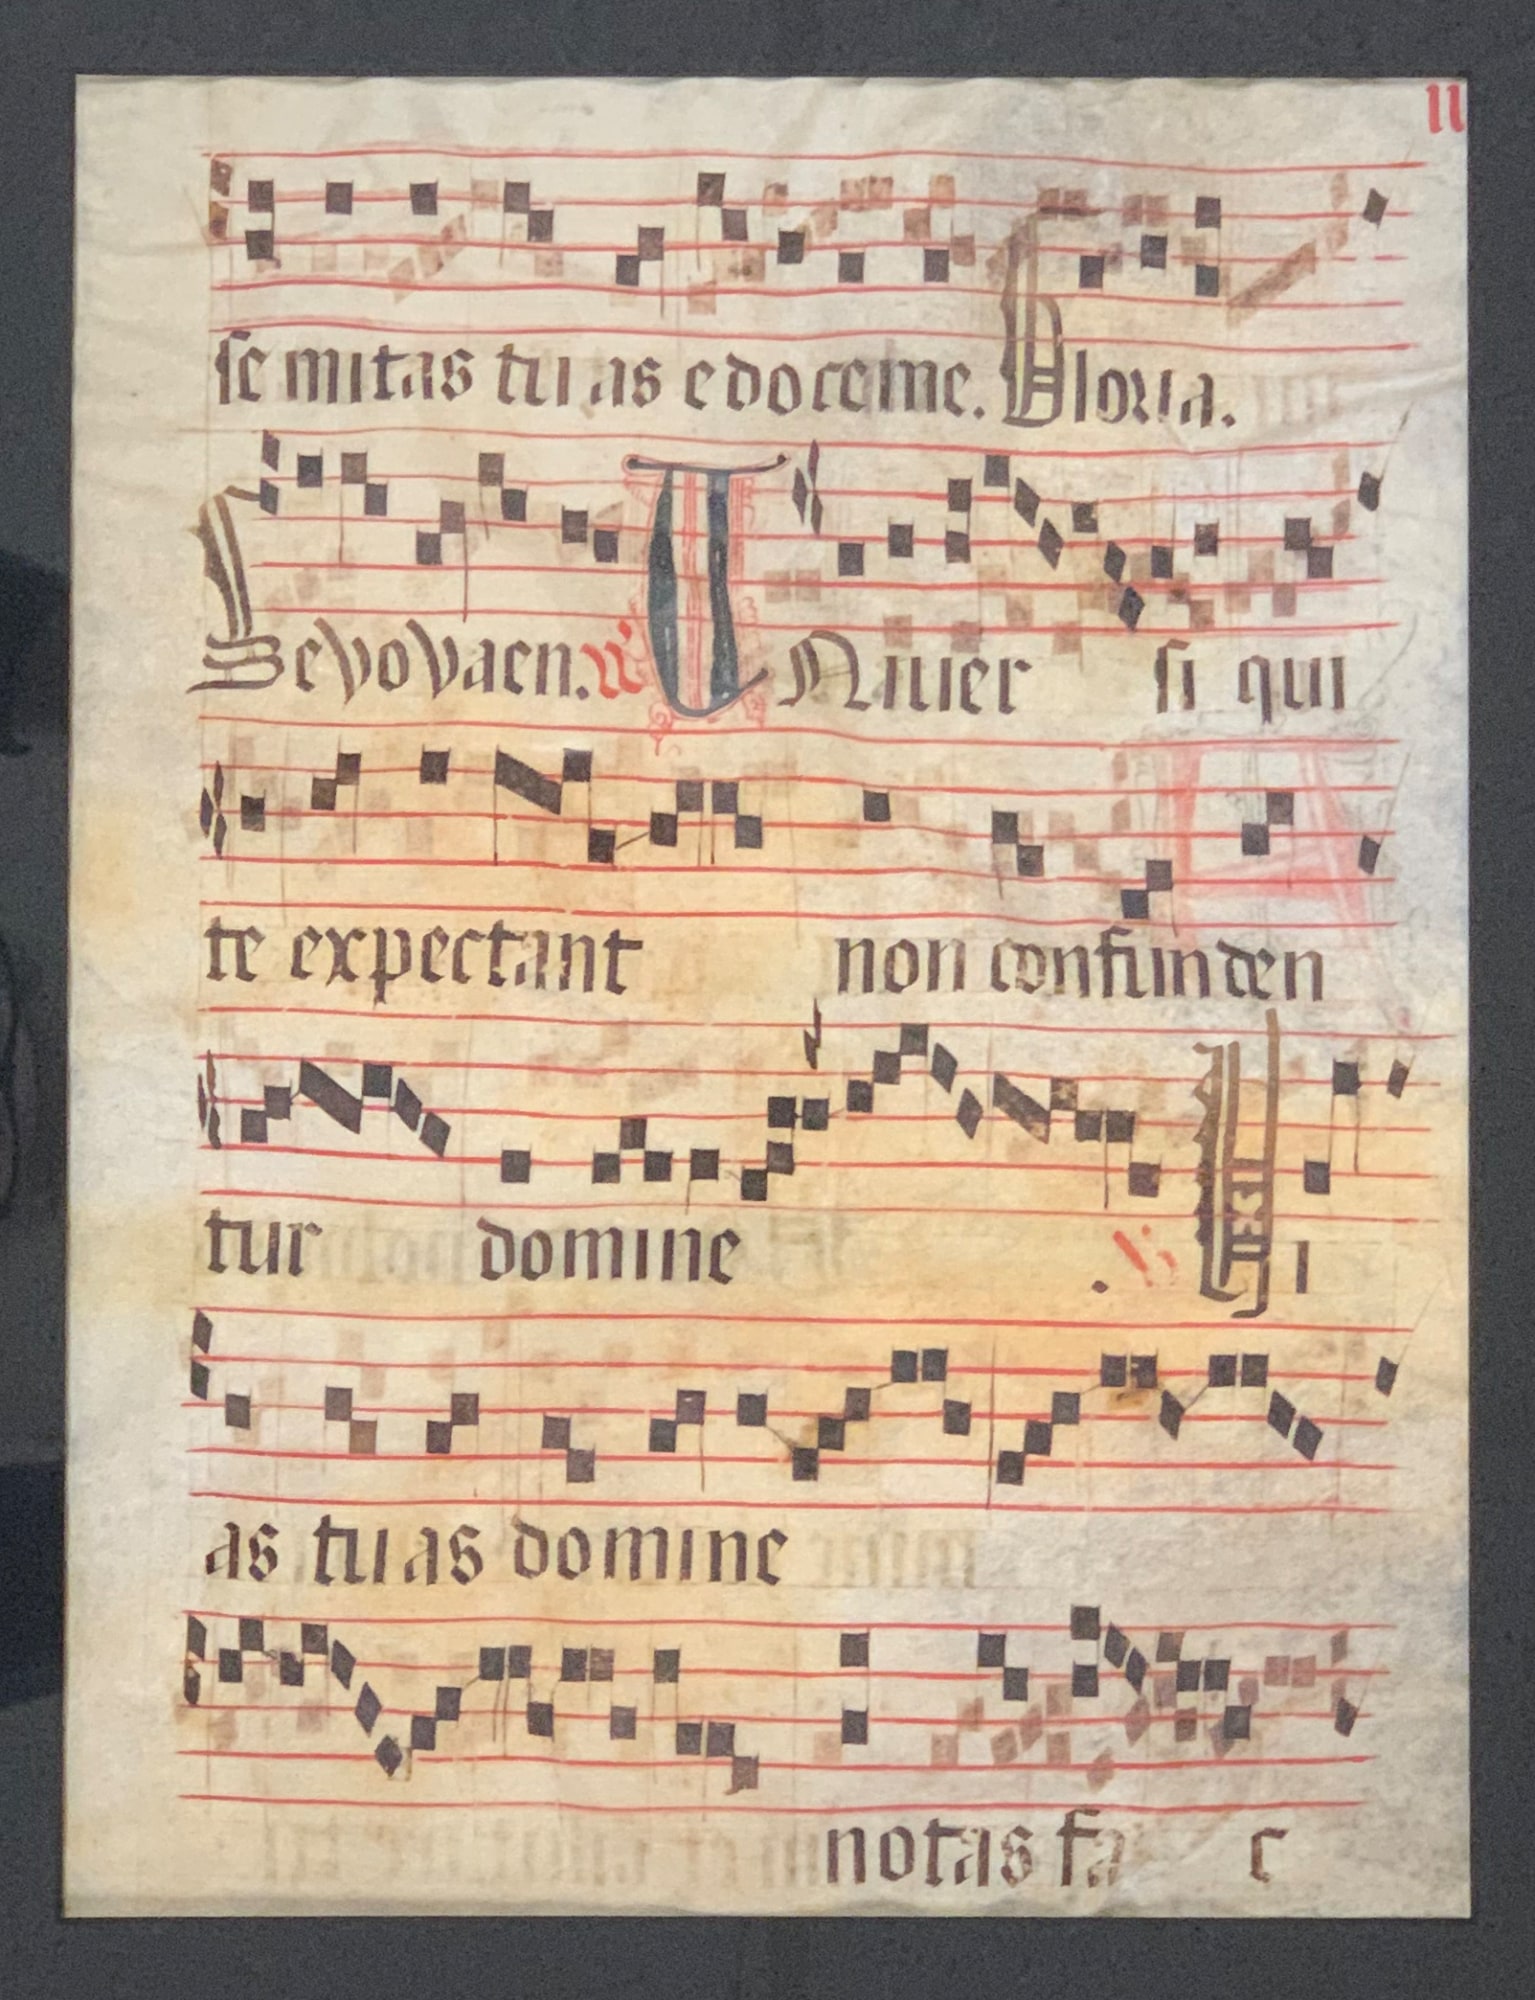 II
se mitas tu as edoceme. Gloria.
Sevovaen. VNiuer si qui
te expectant non confunden
tur domine . V Vi
as tu as domine
notas fa c